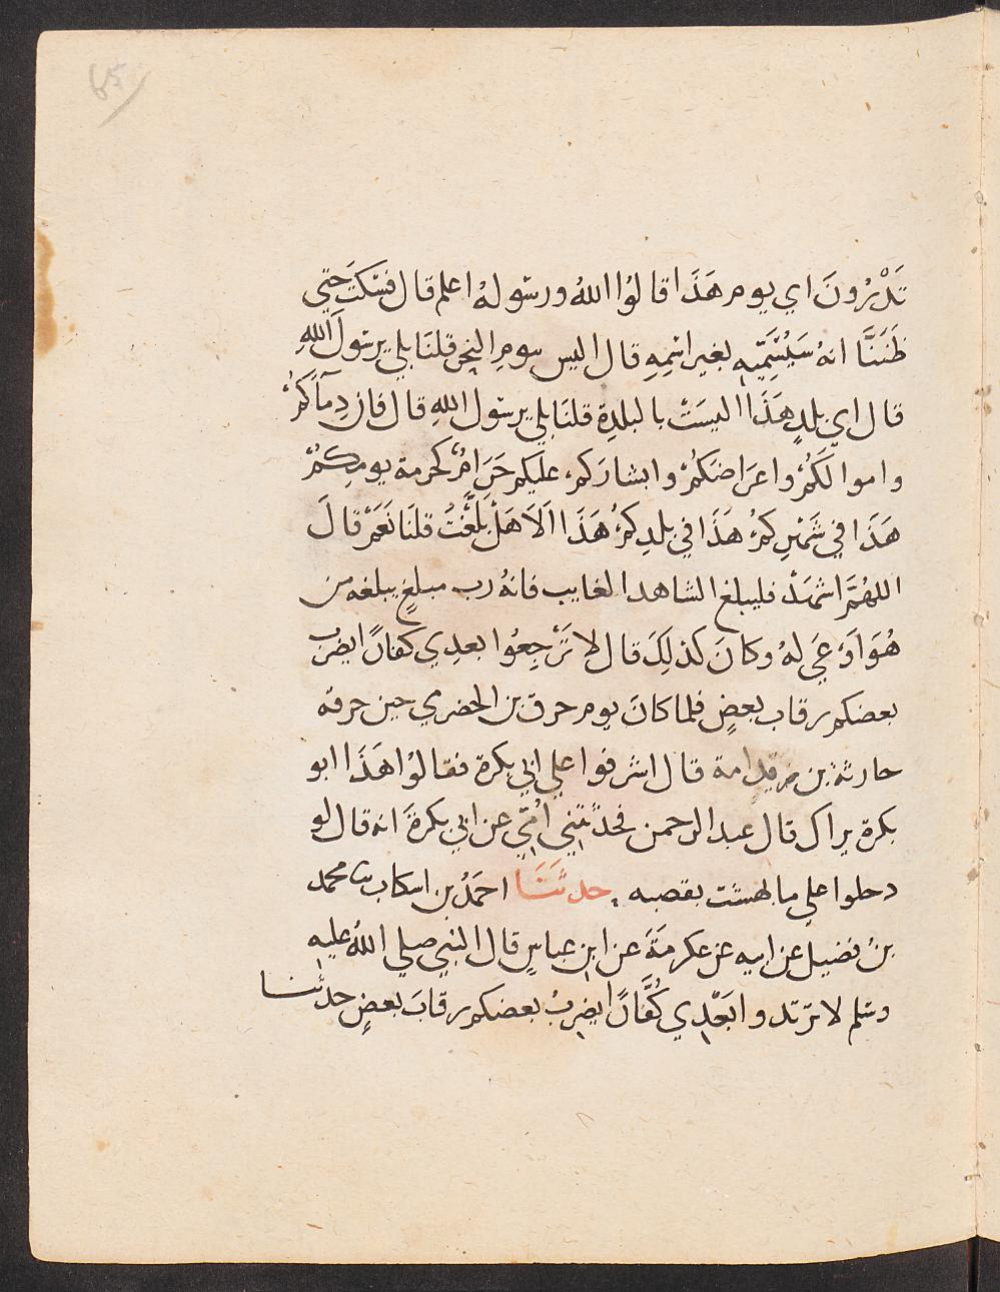 تَدْرُونَ اي يوم هَذَا قالوُا اللهُ ورسولهُ اعلم قال فسَكتَ حَتي
ظَنَنَّا انهُ سَيُسَمِّيهِ بغير اسْمِهِ قال اليس يومِ النحر قلنَا بلي يرسَولَ اللهِ
قال اي بلدٍ هَذَا اليسَتْ بالبلدِة قلنَا بلي يرسَول اللهِ قال فان دِمآكُمْ
واموالَكُمْ واعرَاضَكُمْ وابشارَكمْ عليكم حَرَامُ كحرمة يومِكُمْ
هَذَا في شَهْرِكُمْ هَذَا في بلدِكُمْ هَذَا اَلاَ هَلْ بَلَّغْتُ قلنَا نَعَمْ قالَ
اللهُمَّ اشهَدْ فليبلغ الشاهد الغايب فانهُ رب مبلغٍ يبلغه من
هُوَ اَوْعَي لهُ وكانَ كذلِكَ قال لا تَرْجِعُوا بعدِي كفارًا يضرب
بعضكم رقاب بعضٍ فلما كانَ يوم حرق بن الحضري حين حرقه
حارثة بن قدامة قال اشرفوا علي ابي بكرة فقالوُا هَذَا ابو
بكرة يراك قال عبد الرحمن فحدثتني اُمّي عن ابي بكرةَ انه قال لو
دحلوا علي ما بهشت بقصبه حدثَنَا احمَدُ بن اسكاب ثنا محمد
بنُ فضيل عن ابيه عن عكرمَةَ عن ابن عباسٍ قال النبي صلي اللهُ عليه
وسَلم لا ترتدوا بَعْدِي كُفَّارًا يضربُ بعضكم رقابَ بعضٍ حدثنا